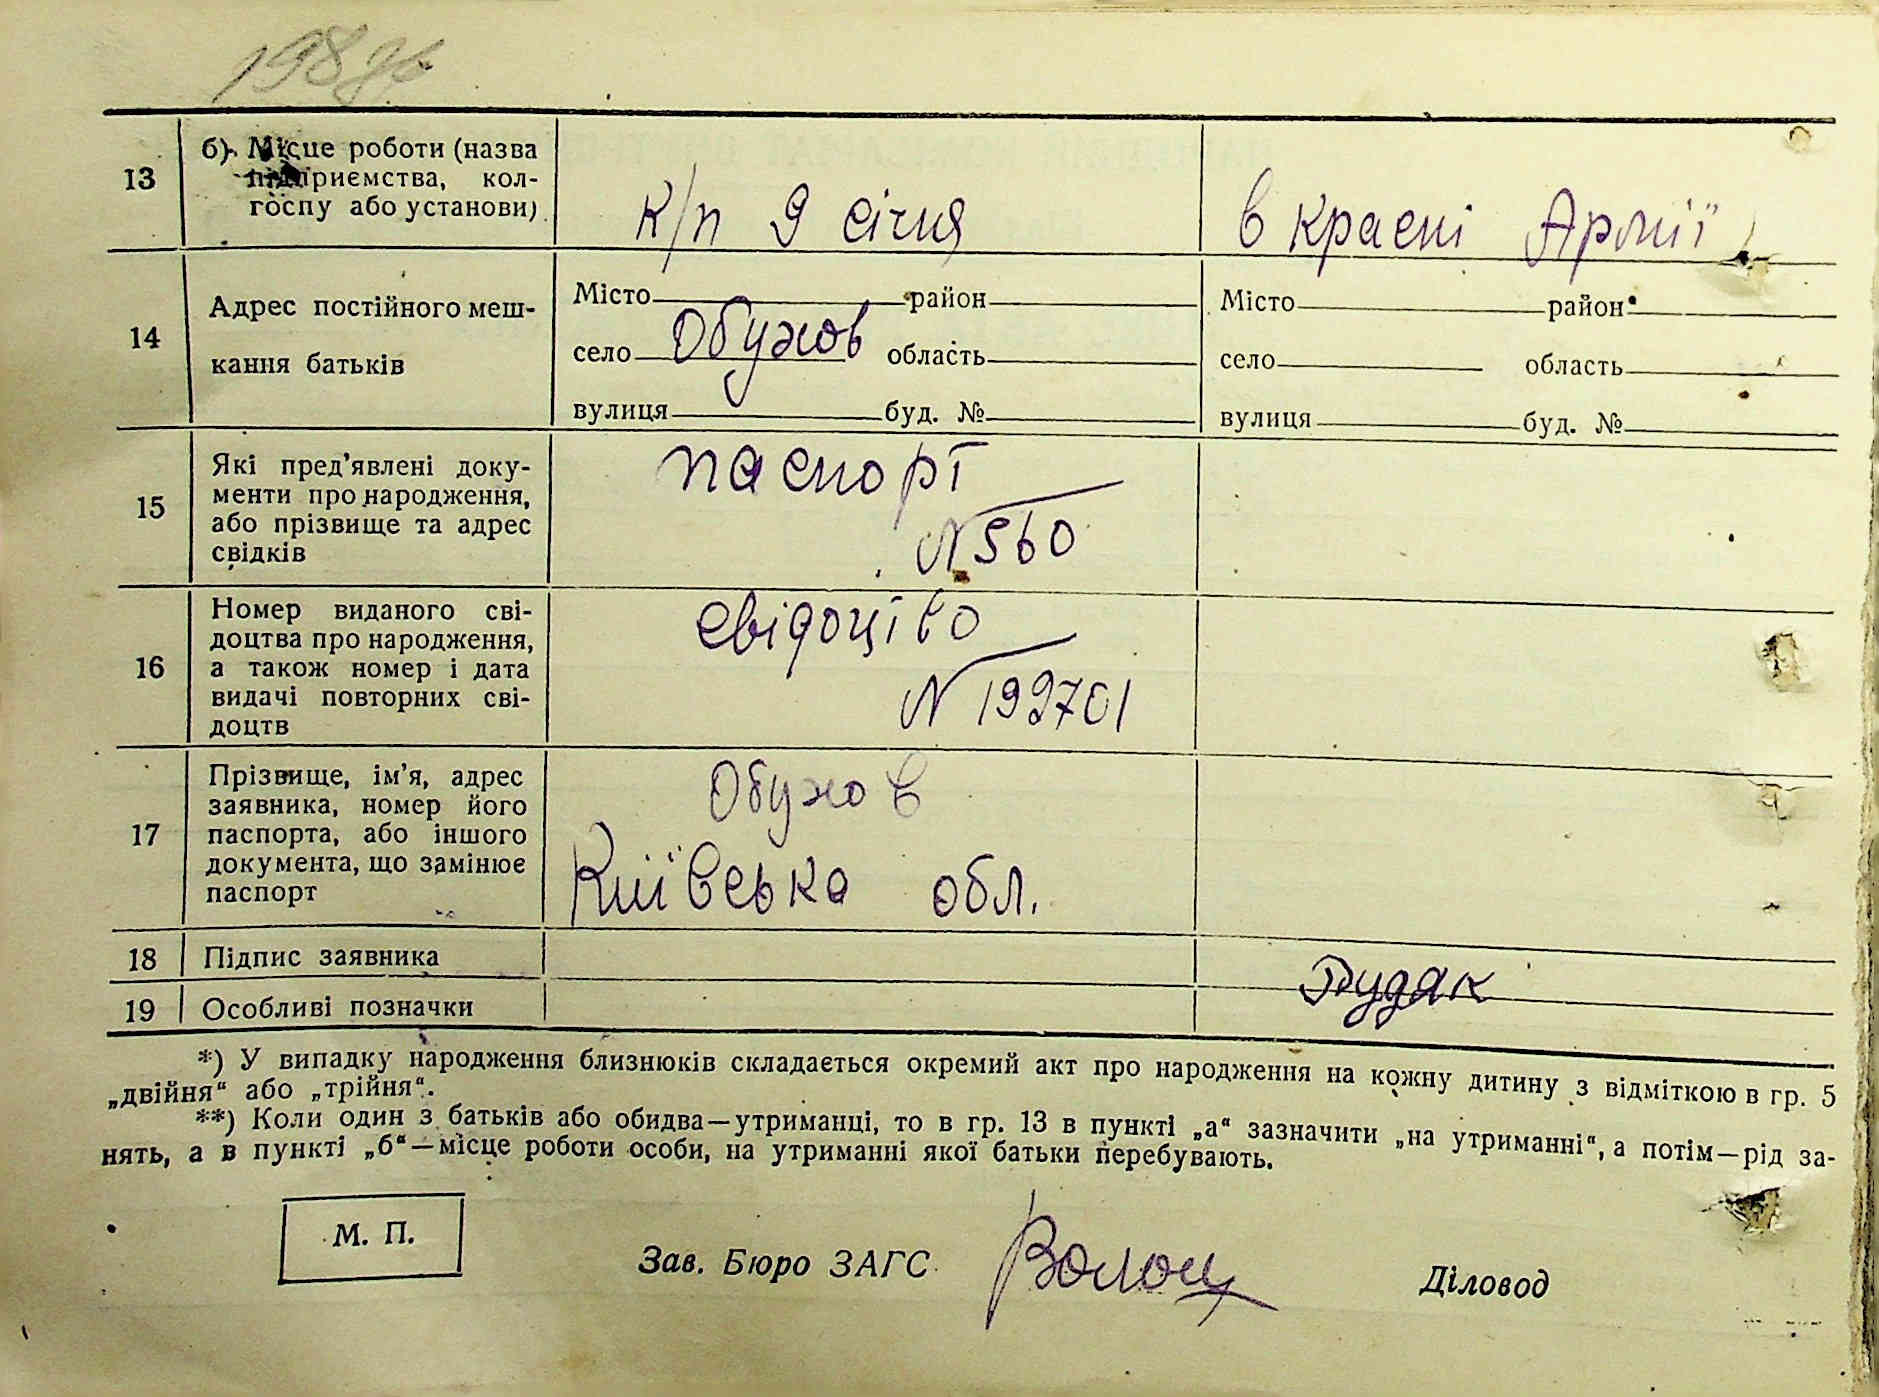 198
13
б) Місце роботи (назва
підприємства, кол-
госпу або установи)
к/п 9 січня
в красні Армії
14
Адрес постійного меш-
кання батьків
Місто район
село Обухов область
вулиця буд. №
Місто район
село область
вулиця буд. №
15
Які пред’явлені доку-
менти про народження,
або прізвище та адрес
свідків
паспорт
N 560
16
Номер виданого сві-
доцтва про народження,
а також номер і дата
видачі повторних сві-
доцтв
свідоцтво
N 199701
17
Прізвище, ім’я, адрес
заявника, номер його
паспорта, або іншого
документа, що замінює
паспорт
Обухов
Київська обл.
18
Підпис заявника
19
Особливі позначки
*) У випадку народження близнюків складається окремий акт про народження на кожну дитину з відміткою в гр. 5
„двійня“ або „трійня“.
**) Коли один з батьків або обидва—утриманці, то в гр. 13 в пункті „а“ зазначити „на утриманні“, а потім—рід за-
нять, а в пункті „б“—місце роботи особи, на утриманні якої батьки перебувають.
М. П.
Зав. Бюро ЗАГС
Діловод